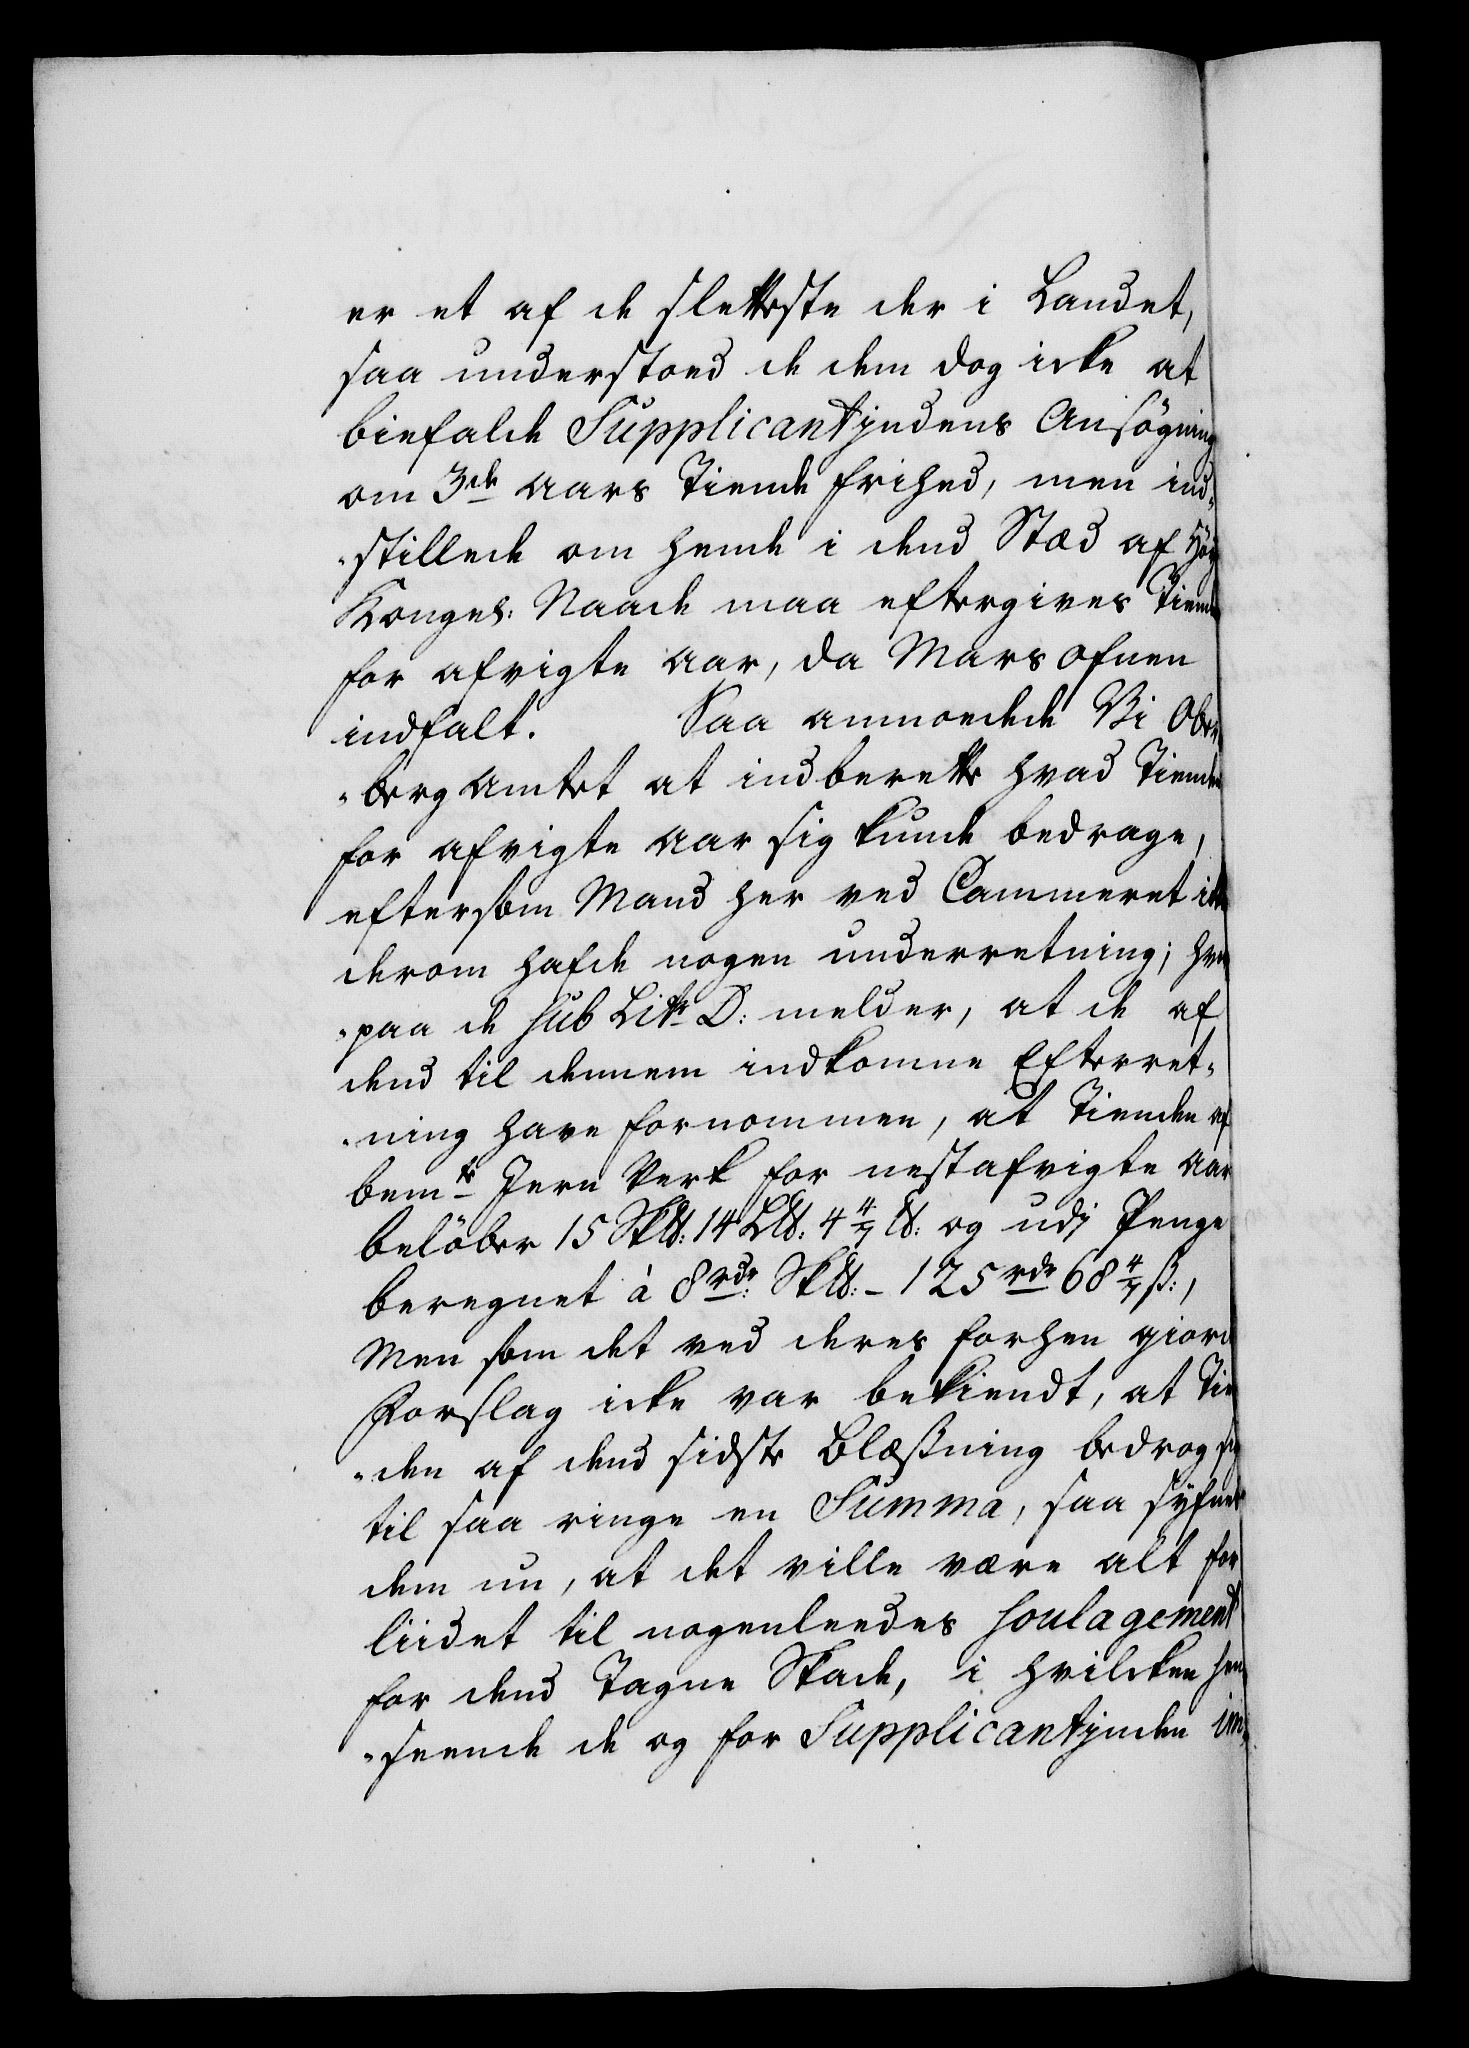 er et af de sletteste der i Landet,
saa understoed de dem dog icke at
biefalde Supplicantindens Ansögning
om 3de Aars Tiende frihed, men ind-
-stillede om hende i dend Stæd af Höy
Kongel: Naade maa eftergives Tiende
for afvigte Aar, da Mars ofnen
indfalt. Saa anmoedede Vi Ober
-berg Amtet at indberette hvad Tienden
for afvigte Aar sig kunde bedrage,
eftersom Mand her ved Cammeret icke
derom hafde nogen underretning; hvor
-paa de sub Litr D: melder, at de af
dend til dennem indkomne Efterret-
-ning have fornommen, at Tienden af
bemte Jern Verk for nestafvigte Aar
belöber 15 Sk℔: 14 L℔: 4 4/7 ℔: og udj Penge
beregnet à 8 rdr: Sk℔: - 125 rdr 68 4/7 ß:,
Men som det ved deres forhen giorde
Forslag icke var bekiendt, at Tien
-den af dend sidste Blæsning bedrog sig
til saa ringe en Summa, saa syfnes
dem nu, at det ville være alt for
liidet til nogenleedes soulagement
for dend Tagne Skade, i hvilcken hen
-seende de og for Supplicantinden in-